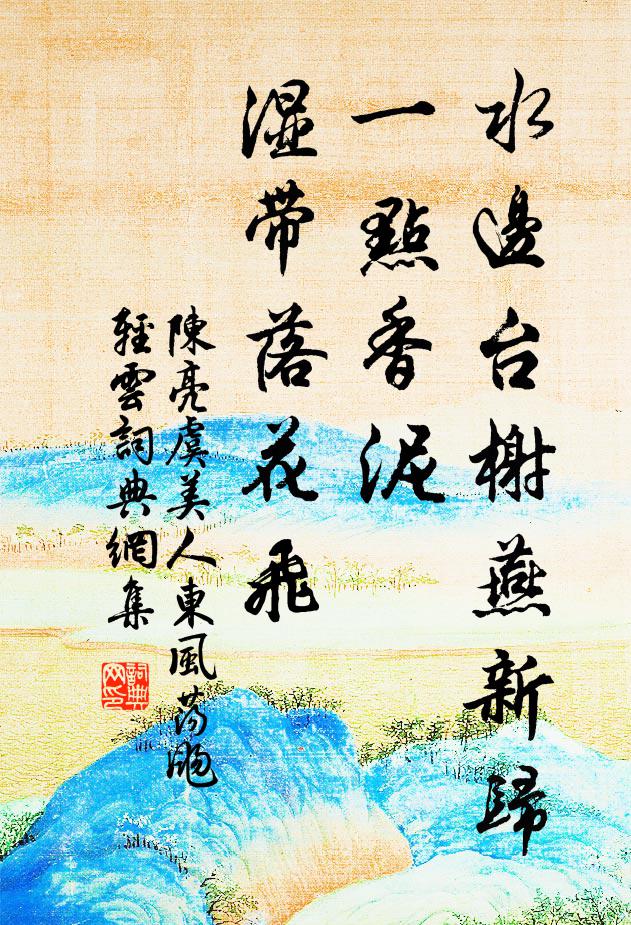 水邊台榭燕新歸
一點香泥
濕帶落花飛
陳亮虞美人東風蕩颺
輕雲詞典網集
詞典網印